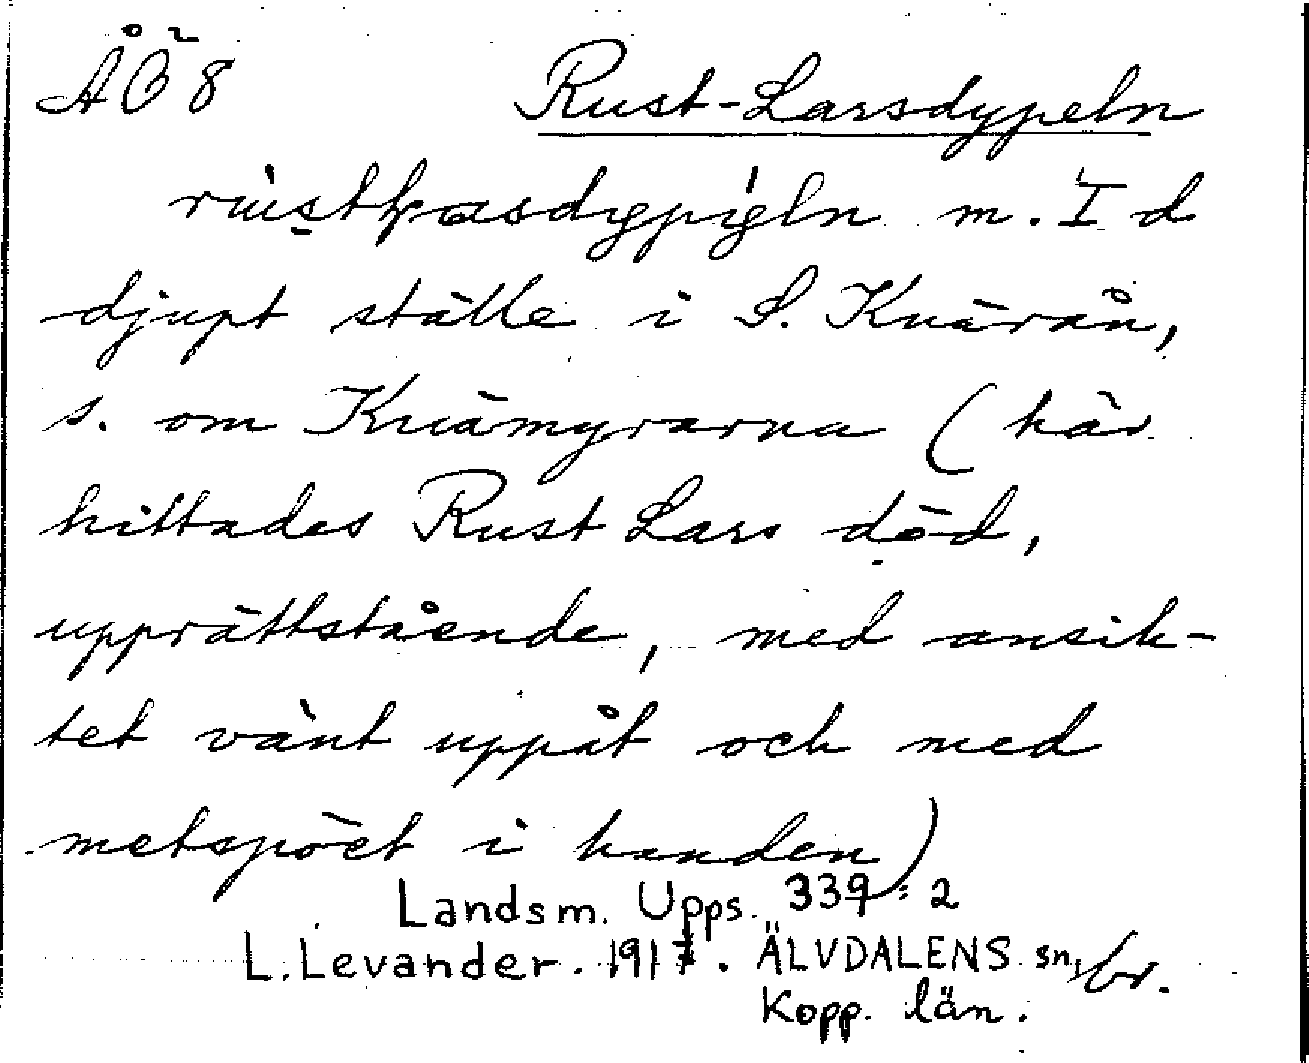 ÅÖ 8 Rust-Larsdypeln
m. I d
djupt ställe i S. Knärån,
s. om Knämyrarna (här
hittades Rust Lars död,
upprättstående, med ansik-
tet vänt uppåt och med
metspöet i handen)
Landsm. Upps. 339:2
L. Levander. 1917. ÄLVDALENS sn, br.
Kopp. län.